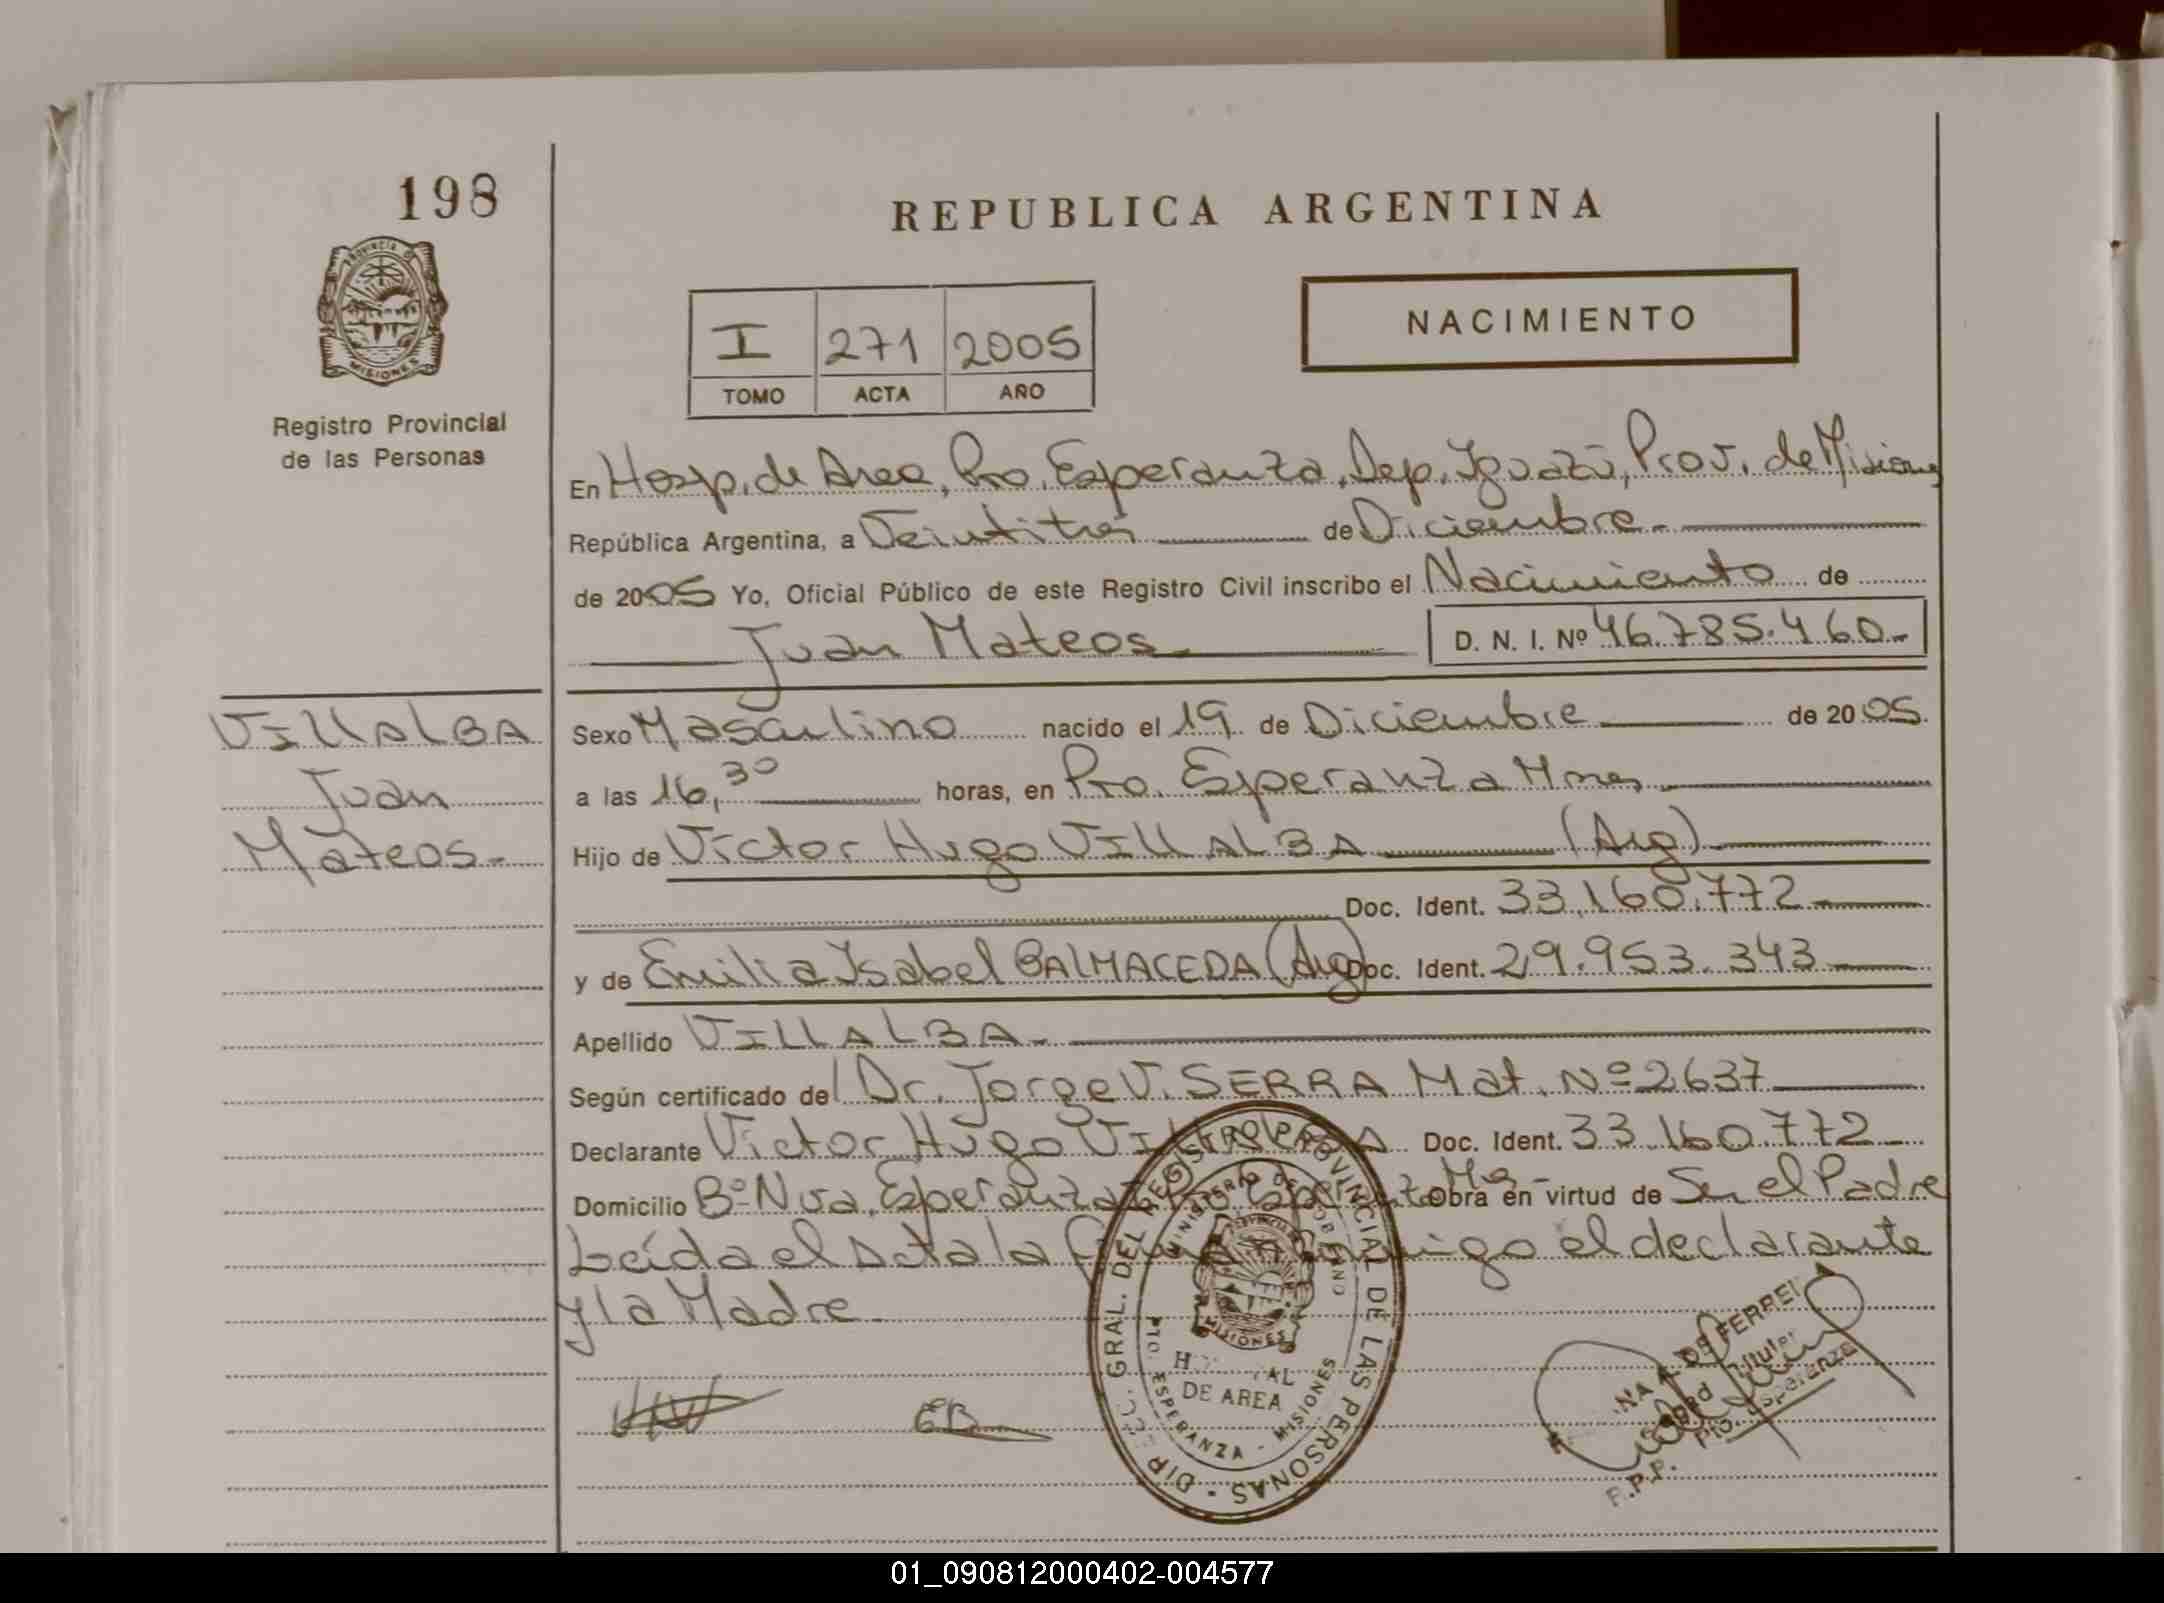 198
PROVINCIA D
MISIONES
Registro Provincial
de las Personas
REPUBLICA ARGENTINA
I 271 2005
TOMO ACTA AÑO
NACIMIENTO
En Hosp. de Area, Pto. Esperanza, Dep. Iguazú, Prov. de Misiones
República Argentina, a Veintitrés de Diciembre.-
de 2005 Yo, Oficial Público de este Registro Civil inscribo el Nacimiento de
Juan Mateos.- D. N. I. Nº 46.785.460.-
VILLALBA
Juan
Mateos.-
Sexo Masculino nacido el 19 de Diciembre de 2005.
a las 16,30 horas, en Pto. Esperanza Mnes
Hijo de Víctor Hugo VILLALBA (Arg)
Doc. Ident. 33.160.772
y de Emilia Isabel BALMACEDA (Arg) Doc. Ident. 29.953.343
Apellido VILLALBA.-
Según certificado del Dr. Jorge V. SERRA Mat. Nº 2637
Declarante Víctor Hugo Doc. Ident. 33.160.772
Domicilio Bº Nva. Esperanza Obra en virtud de Ser el Padre
Leída el Acta la conmigo el declarante
y la Madre
EB
DIRECC. GRAL. DEL REGISTRO PROVINCIAL DE LAS PERSONAS -
MINISTERIO DE GOBIERNO
MISIONES
DE AREA
PTO. ESPERANZA - MISIONES
A. DE FERREI
Pto. Esperanza
R.P.P.
01_090812000402-004577